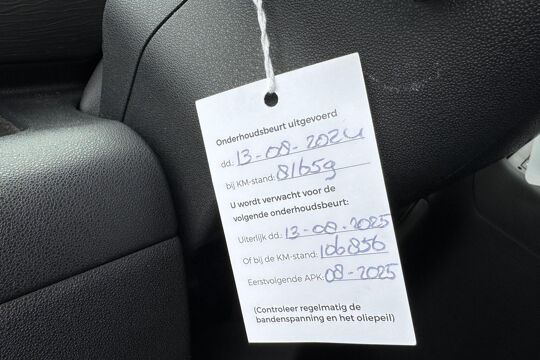 Onderhoudsbeurt uitgevoerd
dd.: 13-08-2024
bij KM-stand: 81659
U wordt verwacht voor de
volgende onderhoudsbeurt:
Uiterlijk dd.: 13-08-2025
Of bij de KM-stand: 106856
Eerstvolgende APK: 08-2025
(Controleer regelmatig de
bandenspanning en het oliepeil)